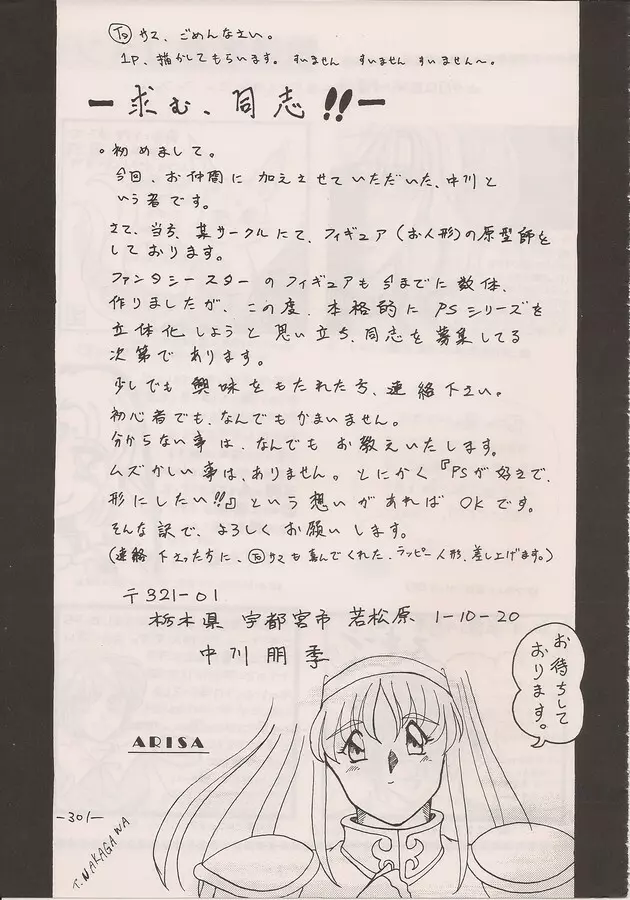 To サマ、ごめんなさい。
1P、描かしてもらいます。すいません すいません すいません〜。
ー求む、同志!!ー
・初めまして。
今回、お仲間に 加えさせていただいた、中川と
いう者です。
さて、当方、某サークルにて、フィギュア(お人形)の原型師を
しております。
ファンタシースター のフィギュアも 今までに 数体、
作りましたが、この度、本格的に PSシリーズを
立体化 しようと 思い立ち、同志を 募集してる
次第で あります。
少しでも 興味を もたれた方、連絡 下さい。
初心者でも、なんでも かまいません。
分からない事は、なんでも お教えいたします。
ムズかしい 事は、ありません。とにかく『PSが 好きで、
形にしたい!!』という 想いが あれば OKです。
そんな 訳で、よろしく お願い します。
(連絡 下さった方に、To サマも 喜んでくれた、ラッピー人形、差し上げます。)
〒321-01
栃木県 宇都宮市 若松原 1-10-20
中川 朋季
お待ちして
おります。
ARISA
-301-
T.NAKAGAWA